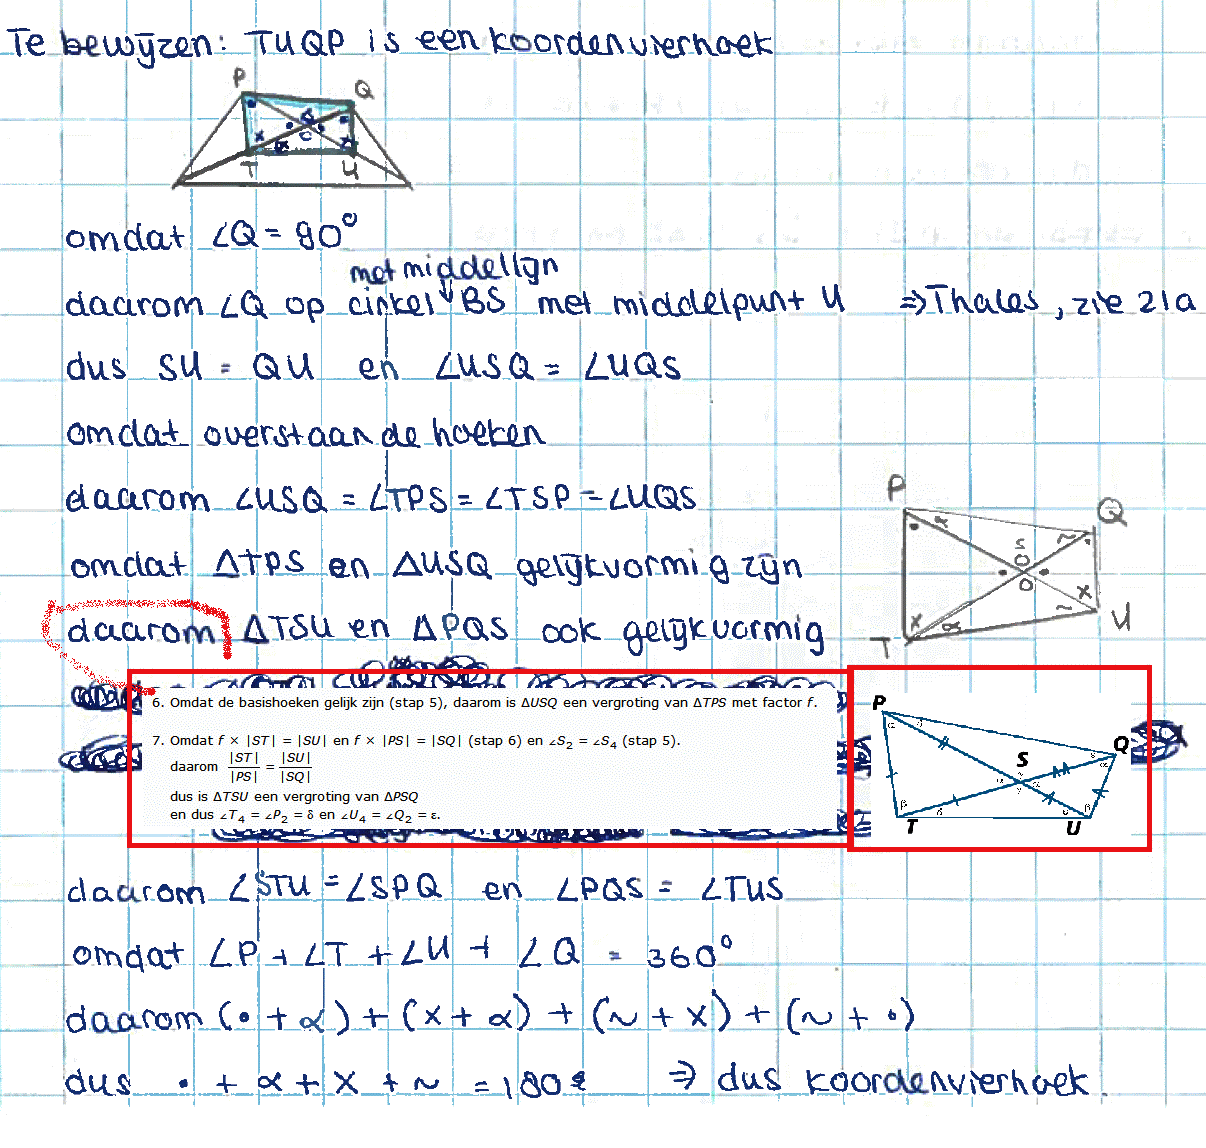 Te bewijzen: TUQP is een koordenvierhoek
P
Q
S
T U
omdat ∠Q = 90°
met middellijn
daarom ∠Q op cirkel BS met middelpunt U ⇒ Thales, zie 21a
dus SU = QU en ∠USQ = ∠UQS
omdat overstaande hoeken
daarom ∠USQ = ∠TPS = ∠TSP = ∠UQS
omdat ΔTPS en ΔUSQ gelijkvormig zijn
daarom ΔTSU en ΔPQS ook gelijkvormig
P
α
Q
~
S
O
O
x
x
~
α
T
U
6. Omdat de basishoeken gelijk zijn (stap 5), daarom is ΔUSQ een vergroting van ΔTPS met factor f.
7. Omdat f × |ST| = |SU| en f × |PS| = |SQ| (stap 6) en ∠S₂ = ∠S₄ (stap 5).
daarom |ST| / |PS| = |SU| / |SQ|
dus is ΔTSU een vergroting van ΔPSQ
en dus ∠T₄ = ∠P₂ = δ en ∠U₄ = ∠Q₂ = ε.
P
Q
S
β
T
U
daarom ∠STU = ∠SPQ en ∠PQS = ∠TUS
omdat ∠P + ∠T + ∠U + ∠Q = 360°
daarom (• + α) + (x + α) + (~ + x) + (~ + •)
dus • + α + x + ~ = 180° ⇒ dus koordenvierhoek.